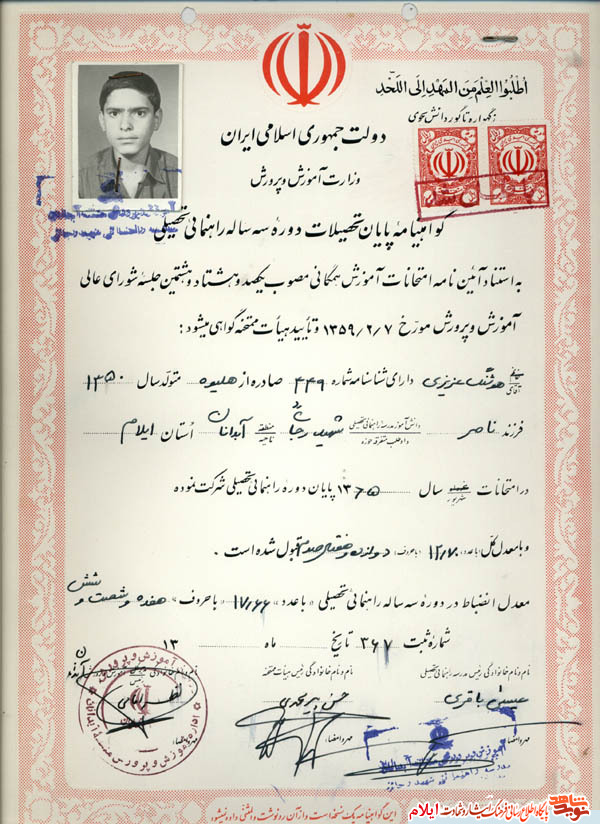 اُطْلُبُوا العِلْمَ مِنَ المَهْدِ اِلَی اللَّحَدِ
ز گهواره تا گور دانش بجوی
دولت جمهوری اسلامی ایران
وزارت آموزش و پرورش
گواهینامهٔ پایان تحصیلات دورهٔ سه سالهٔ راهنمائی تحصیلی
به استناد آئین نامه امتحانات آموزش همگانی مصوب یکصد و هشتاد و هشتمین جلسهٔ شورای عالی
آموزش و پرورش مورّخ ۱۳۵۹/۲/۷ و تأیید هیأت ممتحنه گواهی میشود :
آقای هوشنگ عزیزی دارای شناسنامه شماره ۴۴۹ صادره از متولد سال ۱۳۵۰
فرزند ناصر دانش آموز مدرسه راهنمائی تحصیلی داوطلب متفرقه حوزه شهید رجائی منطقه ناحیه آبدانان اُستان ایلام
در امتحانات شهریور سال ۱۳۶۵ پایان دورهٔ راهنمائی تحصیلی شرکت نموده
و با معدل کل (با عدد) ۱۲/۷۰ (با حروف) دوازده و هفتاد صدم قبول شده است .
معدل انضباط در دورهٔ سه سالهٔ راهنمائی تحصیلی «با عدد» ۱۷/۶۶ «با حروف» هفده و شصت و شش
شمارهٔ ثبت ۲۶۷ تاریخ ماه ۱۳
نام و نام خانوادگی رئیس مدرسه راهنمائی تحصیلی
نام و نام خانوادگی رئیس هیأت ممتحنه
نام و نام خانوادگی رئیس آموزش و پرورش
عیسی باقری
حسن پیرمحمدی
مهر و امضاء
مهر و امضاء
این گواهینامه یک نسخه است و از آن رونوشت و المثنی داده نمیشود
نوید شاهد
پایگاه اطلاع رسانی فرهنگ ایثار و شهادت ایلام